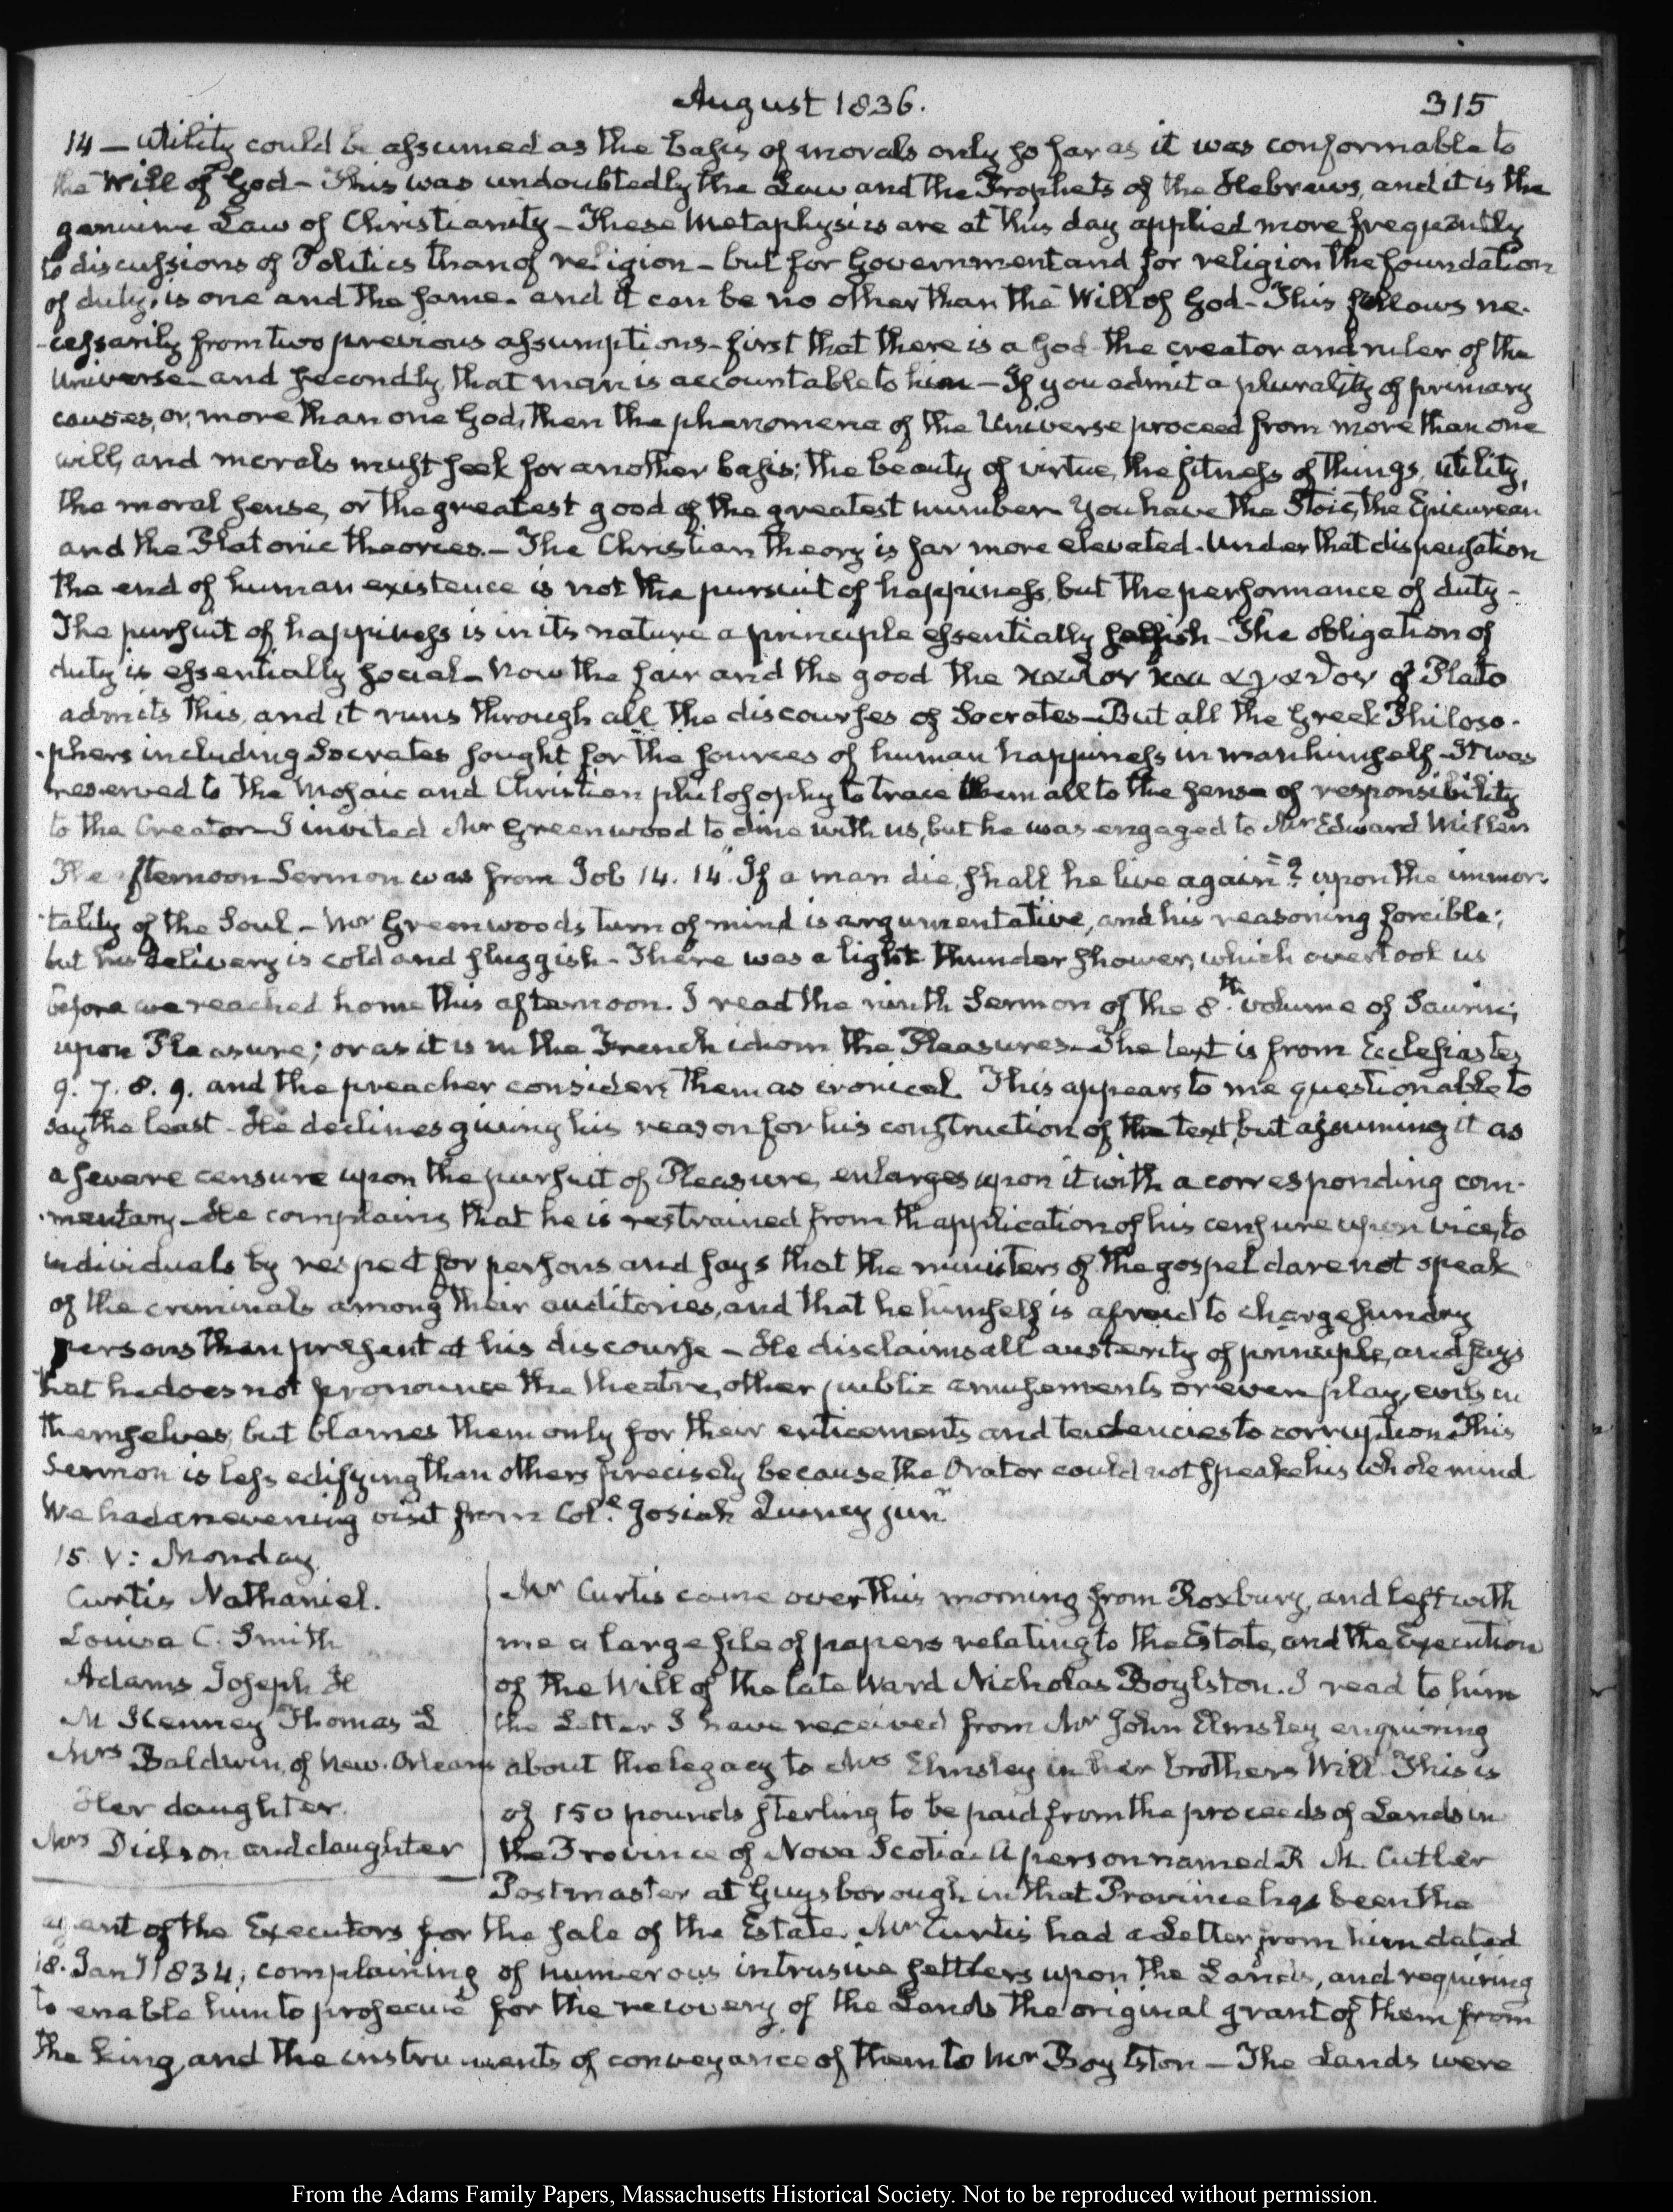 August 1836.
315
14 — Utility could be assumed as the basis of morals only so far as it was conformable to
the Will of God — This was undoubtedly the Law and the Prophets of the Hebrews, and it is the
genuine Law of Christianity — These Metaphysics are at this day applied more frequently
to discussions of Politics than of religion — but for Government and for religion the foundation
of duty, is one and the same — and it can be no other than the Will of God — This follows ne-
-cessarily from two previous assumptions — first that there is a God the creator and ruler of the
Universe — and secondly, that man is accountable to him — If you admit a plurality of primary
causes, or, more than one God, then the phenomena of the Universe proceed from more than one
will, and morals must seek for another basis; the beauty of virtue, the fitness of things, utility,
the moral sense, or the greatest good of the greatest number. You have the Stoic, the Epicurean
and the Platonic theories. — The Christian theory is far more elevated. Under that dispensation
the end of human existence is not the pursuit of happiness, but the performance of duty —
The pursuit of happiness is in its nature a principle essentially selfish — The obligation of
duty is essentially social — Now the fair and the good the καλον και αγαθον of Plato
admits this, and it runs through all the discourses of Socrates — But all the Greek Philoso-
-phers including Socrates sought for the sources of human happiness in man himself — It was
reserved to the Mosaic and Christian philosophy to trace them all to the sense of responsibility
to the Creator — I invited Mr Greenwood to dine with us, but he was engaged to Mr Edward Miller
The afternoon Sermon was from Job 14. 14 "If a man die, shall he live again"? upon the immor-
-tality of the Soul — Mr Greenwood's turn of mind is argumentative, and his reasoning forcible;
but his delivery is cold and sluggish — There was a light thunder shower, which overtook us
before we reached home this afternoon. I read the ninth Sermon of the 8th volume of Saurin;
upon Pleasure; or as it is in the French idiom the Pleasures — The text is from Ecclesiastes
9. 7. 8. 9. and the preacher considers them as ironical. This appears to me questionable to
say the least — He declines giving his reason for his construction of the text, but assuming it as
a severe censure upon the pursuit of Pleasure, enlarges upon it with a corresponding com-
-mentary — He complains that he is restrained from th application of his censure upon vice, to
individuals by respect for persons and says that the ministers of the gospel dare not speak
of the criminals among their auditories, and that he himself is afraid to charge sundry
persons then present at his discourse — He disclaims all austerity of principle, and says
that he does not pronounce the theatre, other public amusements or even play, evils in
themselves, but blames them only for their enticements and tendencies to corruption. This
Sermon is less edifying than others precisely because the Orator could not speak his whole mind
We had an evening visit from Col.e Josiah Quincy junr
15. V: Monday.
Curtis Nathaniel.
Louisa C. Smith
Adams Joseph H
M Kenney Thomas L
Mrs Baldwin, of New. Orleans
Her daughter.
Mrs Dickson and daughter
Mr Curtis came over this morning from Roxbury, and left with
me a large file of papers relating to the Estate, and the Execution
of the Will of the late Ward Nicholas Boylston. I read to him
the Letter I have received from Mr John Elmsley enquiring
about the legacy to Mrs Elmsley in her brothers Will. This is
of 150 pounds sterling to be paid from the proceeds of Lands in
the Province of Nova Scotia. A person named R M. Cutler
Postmaster at Guysborough in that Province has been the
agent of the Executors for the sale of the Estate. Mr Curtis had a Letter from him dated
18. Jany 1834, complaining of numerous intrusive settlers upon the Lands, and requiring
to enable him to prosecute for the recovery of the Lands the original grant of them from
the King, and the instruments of conveyance of them to Mr Boylston — The Lands were
From the Adams Family Papers, Massachusetts Historical Society. Not to be reproduced without permission.